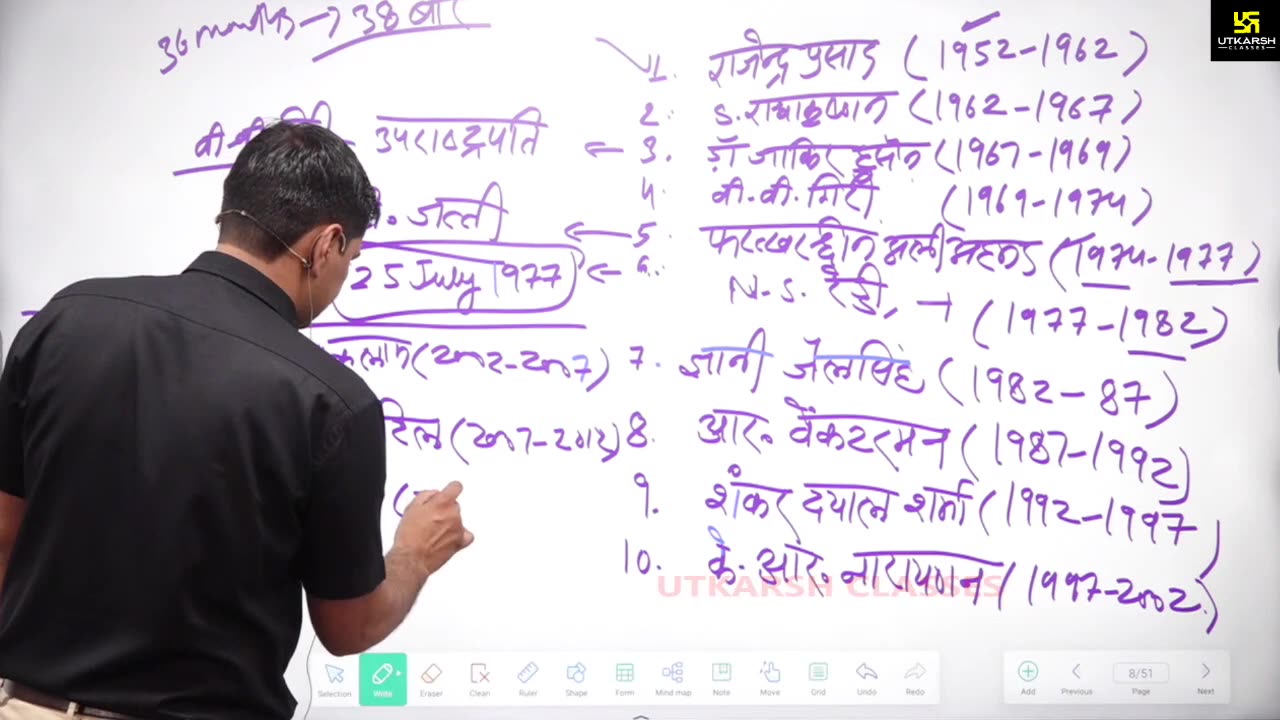 36 months → 38 बार
उपराष्ट्रपति
. जत्ती
25 July 1977
कलाम (2002-2007)
टिल (2007-2012)
1. राजेन्द्र प्रसाद (1952-1962)
2. S. राधाकृष्णन (1962-1967)
3. डॉ जाकिर हुसैन (1967-1969)
4 वी.वी. गिरी (1969-1974)
5 फखरुद्दीन अली अहमद (1974-1977)
6. N.S. रेड्डी, → (1977-1982)
7. ज्ञानी जेलसिंह (1982-87)
8. आर. वेंकटरमन (1987-1992)
9. शंकर दयाल शर्मा (1992-1997)
10. के. आर. नारायणन (1997-2002)
UTKARSH CLASSES
UTKARSH
CLASSES
Selection Write Eraser Clean Ruler Shape Form Mind map Note Move Grid Undo Redo
Add Previous 8/51 Page Next